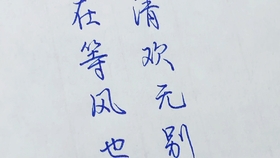 清欢无别
在等风也